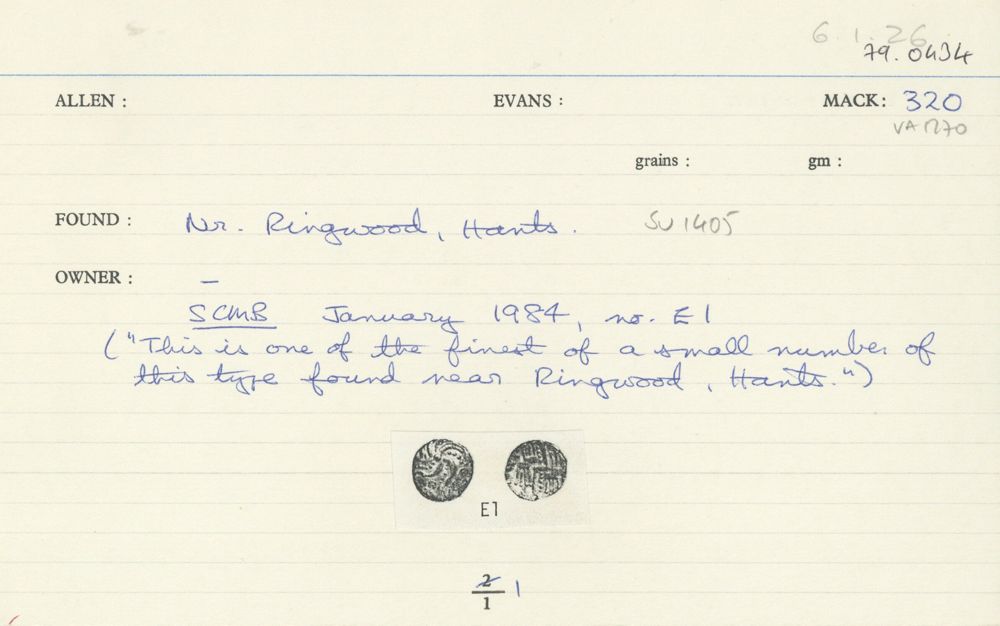 6.1.26
79.0434
ALLEN : EVANS : MACK: 320
VA 1270
grains : gm :
FOUND : Nr. Ringwood, Hants. SU 1405
OWNER : —
SCMB January 1984, no. E1
("This is one of the finest of a small number of
this type found near Ringwood, Hants.")
E1
2 1
1